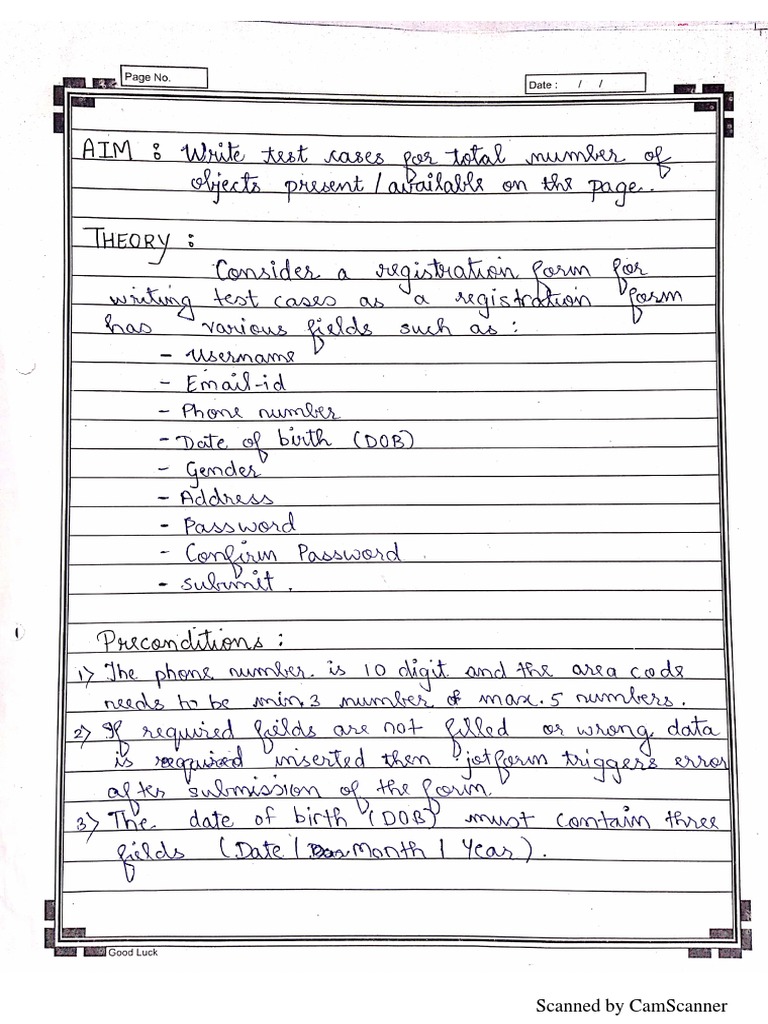 Page No.
Date : / /
AIM : Write test cases for total number of
objects present / available on the page.
THEORY :
Consider a registration form for
writing test cases as a registration form
has various fields such as :
- Username
- Email-id
- Phone number
- Date of birth (DOB)
- Gender
- Address
- Password
- Confirm Password
- Submit .
Preconditions :
1) The phone number is 10 digit and the area code
needs to be min. 3 number & max. 5 numbers.
2) If required fields are not filled or wrong data
is inserted then jotform triggers error
after submission of the form.
3) The date of birth (DOB) must contain three
fields (Date / Month / Year).
Good Luck
Scanned by CamScanner